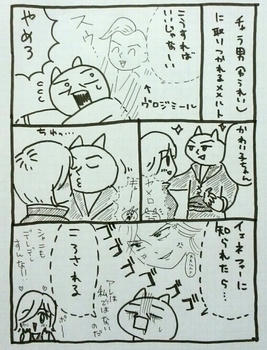 チャラ男(ゆうれい)
に取りつかれるメメハルト
こうすれば
いいじゃなーい
スウ
やめろ
ヴロジミール
かわい子ちゃん
ヤメロ
ちゅっ…
イェネファーに
知られたら…
ころされる
アレは
私ではない
のだ
シャニも
でしょでしょ
すんな!!